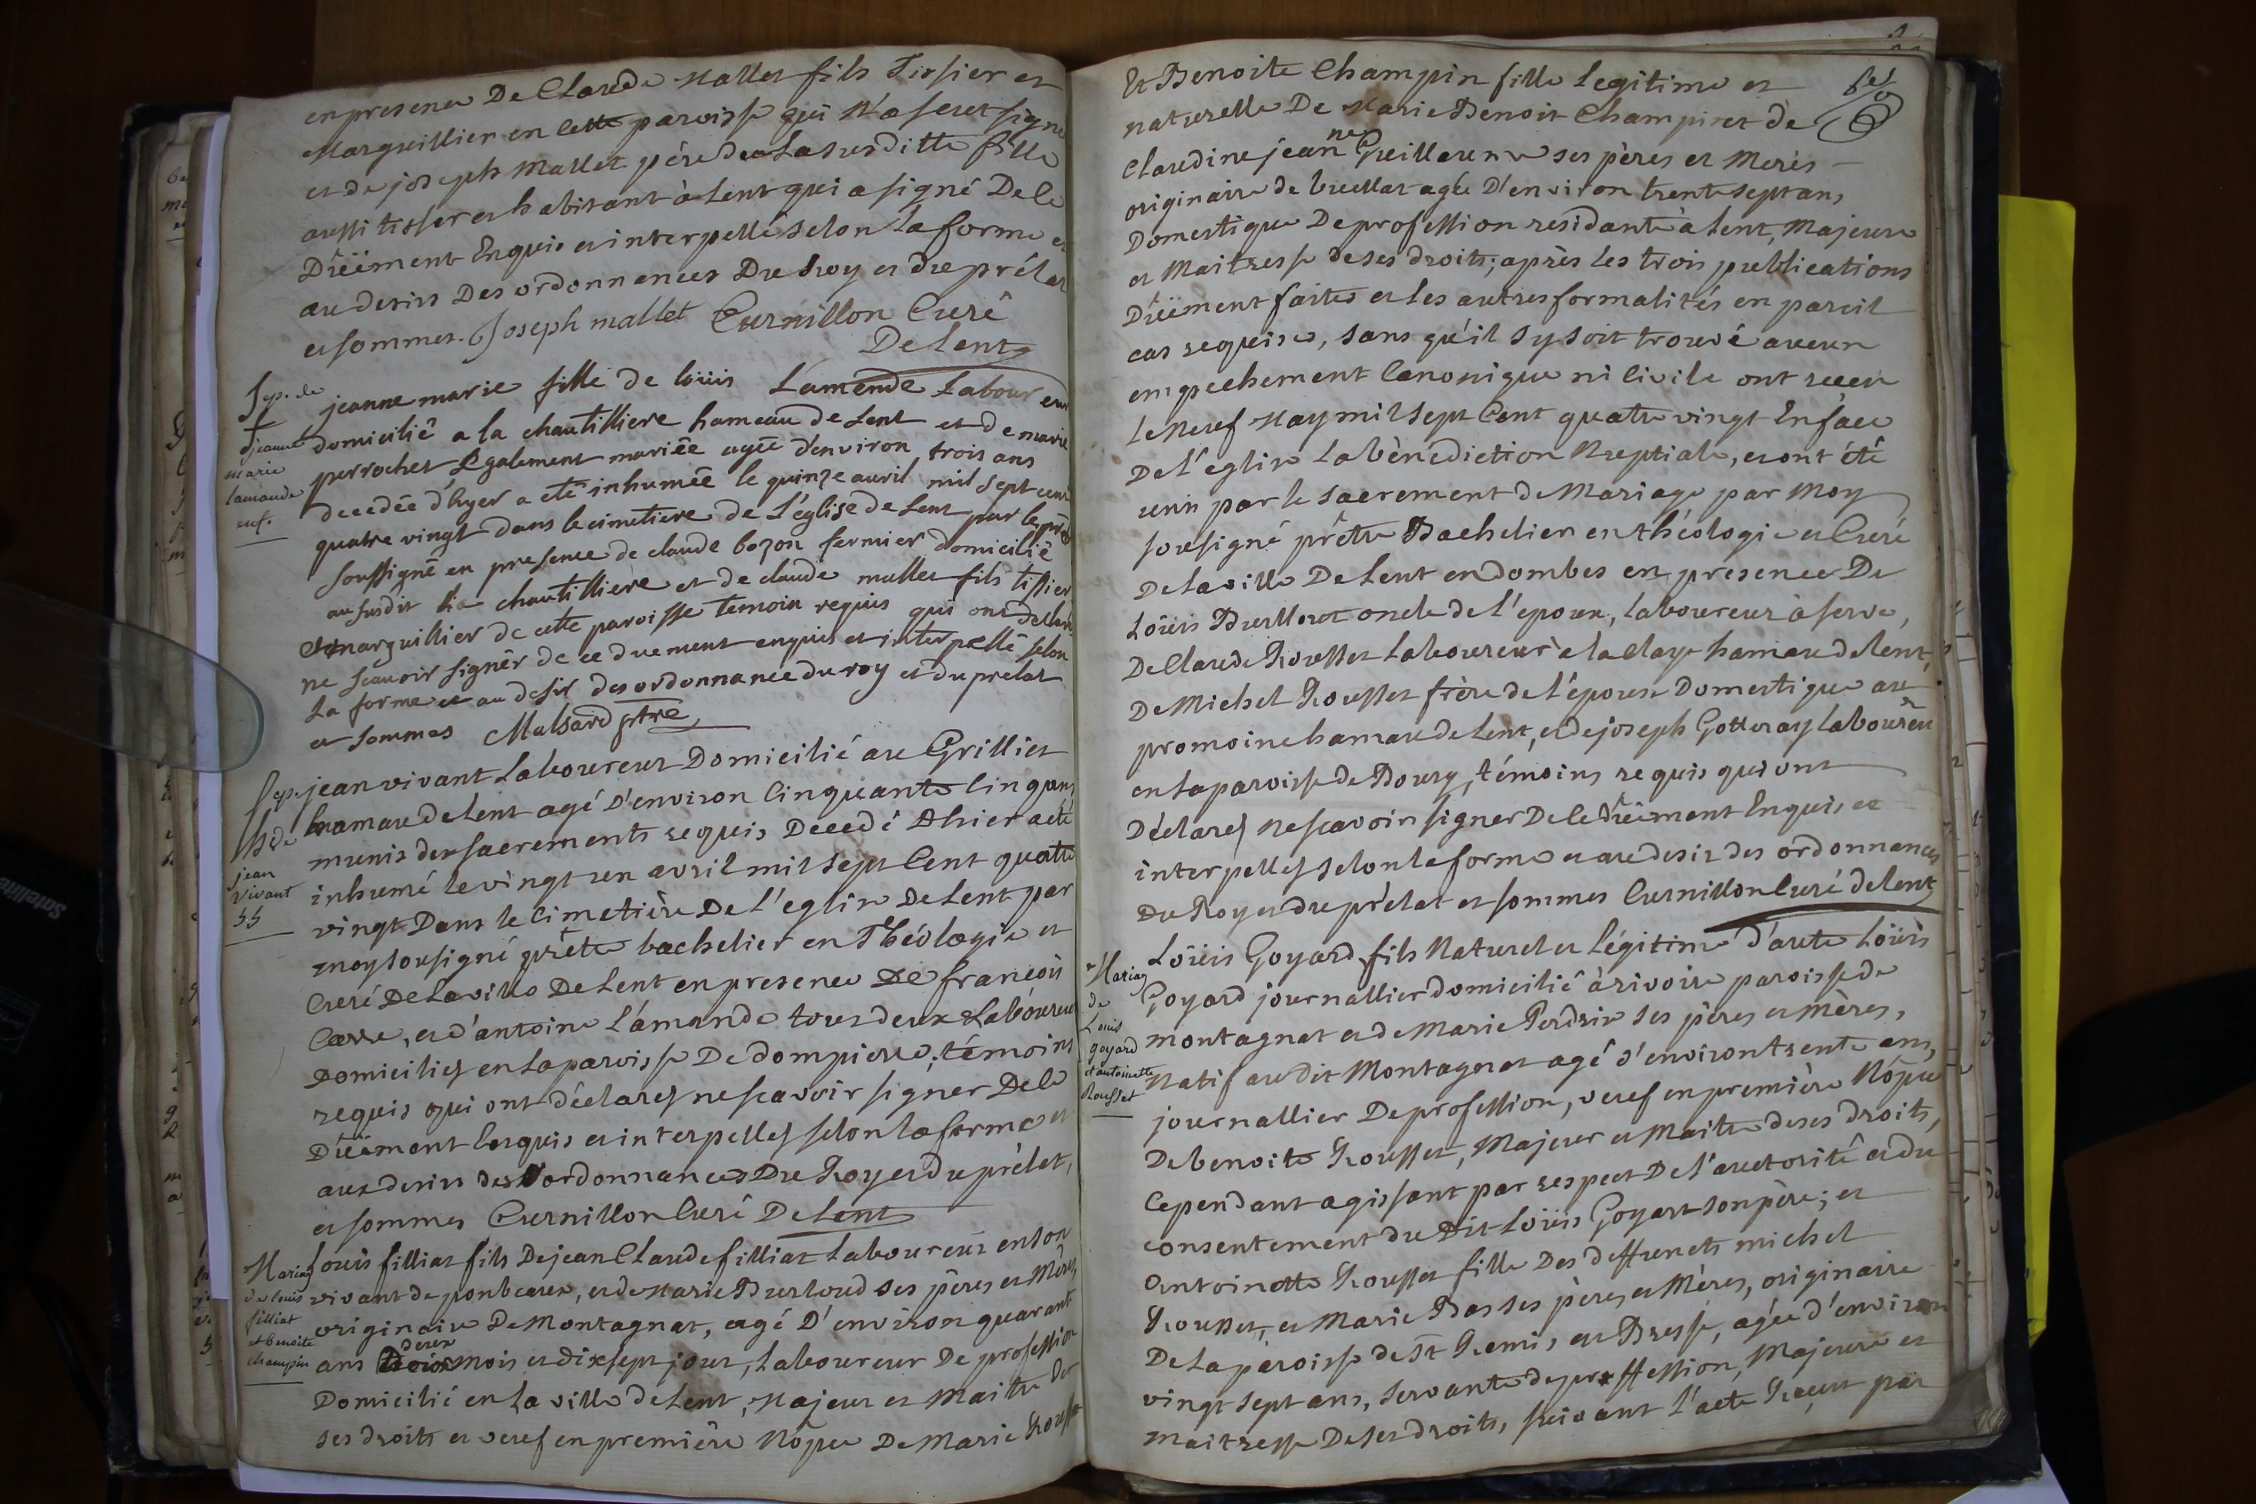 en presence De Claude Mallet fils Tissier et
Marguillier en cette paroisse qui N'a sceut signé
et de joseph Mallet père de La susditte fille
aussi tisser et habitant à Lent qui a signé De ce
Dûëment Enquis et interpellé selon la forme et
au desirs Des ordonnences Du Roy et du prélat
et sommes. Joseph mallet Curnillon Curé
De Lent
Sep. de
jeanne
marie
lamande
enf.
jeanne marie fille de loüis Lamende Laboureur
domicilié a la chautilliere hameau de Lent et de marie
perrochet Egalement mariëe agée d'environ trois ans
decedée d'hyer a eté inhumée le quinze auril mil sept cent
quatre vingt dans le cimetiere de L'église de Lent par le prê
soussigné en presence de claude bozon fermier domicilié
au susdit la chautilliere et de claude mallet fils tissier
et marguillier de cette paroisse temoin requis qui ont declaré
ne scauoir signér de ce duement enquis et interpellé selon
la forme et au desir des ordonnance du roy et du prelat
et sommes Malsard ptre
Sep.
de
jean
vivant
55
jean vivant Laboureur Domicilié au Grillet
hamau de Lent agé d'environ Cinquante Cinq ans
munis des sacrements requis Decedé Ahier a eté
inhumé le vingt un avril mil sept Cent quatre
vingt Dans le Cimetière De l'eglise De Lent par
moy sousigné prêtre bachelier en Théologie et
Curé De La ville De Lent en presence De françois
Carre, et d'antoine L'amande tous deux Laboureur
Domiciliés en La paroisse De dompierre, témoins
requis qui ont déclarés ne scavoir signer De ce
Dûëment Enquis et interpellés selon la forme et
aux desirs des ordonnances Du Roy et du prélat,
et sommes Curnillon Curé De Lent
Mariag
de louis
filliat
et benoite
champin
Louis filliat fils De jean Claude filliat Laboureur en son
vivant de , et de Marie Burloud ses pères et Mères,
originaire De Montagnat, agé D'environ quarant
ans deux mois et dix sept jour, Laboureur De profession
Domicilié en La ville de Lent, Majeur et Maitre De
ses droits et veuf en première Nôpce De Marie Rousset
Et Benoite Champin fille Legitime et
naturelle De Marie Benoit Champin et de
Claudine jeanne Guillaume ses pères et Merès
originaire de buellat agée D'environ trent sept ans,
Domestique De profession résidante à Lent, Majeure
et Maitresse de ses droits; après les trois publications
Dûëment faites et les autres formalités en pareil
cas requises, sans qu'il sy soit trouvé aucun
empechement Canonique ni Civile ont receu
Le Neuf May mil sept Cent quatre vingt En face
De l'eglise La bènediction Nuptiale, et ont été
unis par le sacrement de Mariage par Moy
sousigné prêtre Bachelier en théologie et Curé
De La ville De Lent en dombes en presence De
Loüis oncle de l'epoux, laboureur à serve,
De Claude Rousset Laboureur à la Claye hamau de Lent,
De Michel Rousset frère de l'épouse Domestique au
promoine hamau de Lent, et de joseph Gotteray Laboureur
en La paroisse de Bourg, témoins requis qui ont
Déclarés ne scavoir signer De ce dûëment Enquis et
interpellés selon la forme et au desir des ordonnances
Du Roy et du prélat et sommes Curnillon Curé de Lent
Mariag
de
Louis
goyard
et antoinette
Rousset
Loüis Goyard fils Naturel et Légitime d'autre Loüis
Goyard journallier domicilié à rivoire paroisse de
montagnat et de Marie Perdrix ses pères et mères,
Natif au dit Montagnat agé d'environ trente ans,
journallier De profession, veuf en première Nôpce
De benoite Rousset, Majeur et Maitre de ses droits,
Cependant agissant par respect De l'auctorité et du
consentement du dit Loüis Goyart son père; et
Antoinette Rousset fille Des deffuncts michel
Rousset, et Marie Bas ses pères et Mères, originaire
De La paroisse de St Remis en Bresse, agée d'environ
vingt sept ans, servante de proffession, Majeure et
maitresse De ses droits, suivant l'acte Reçut par